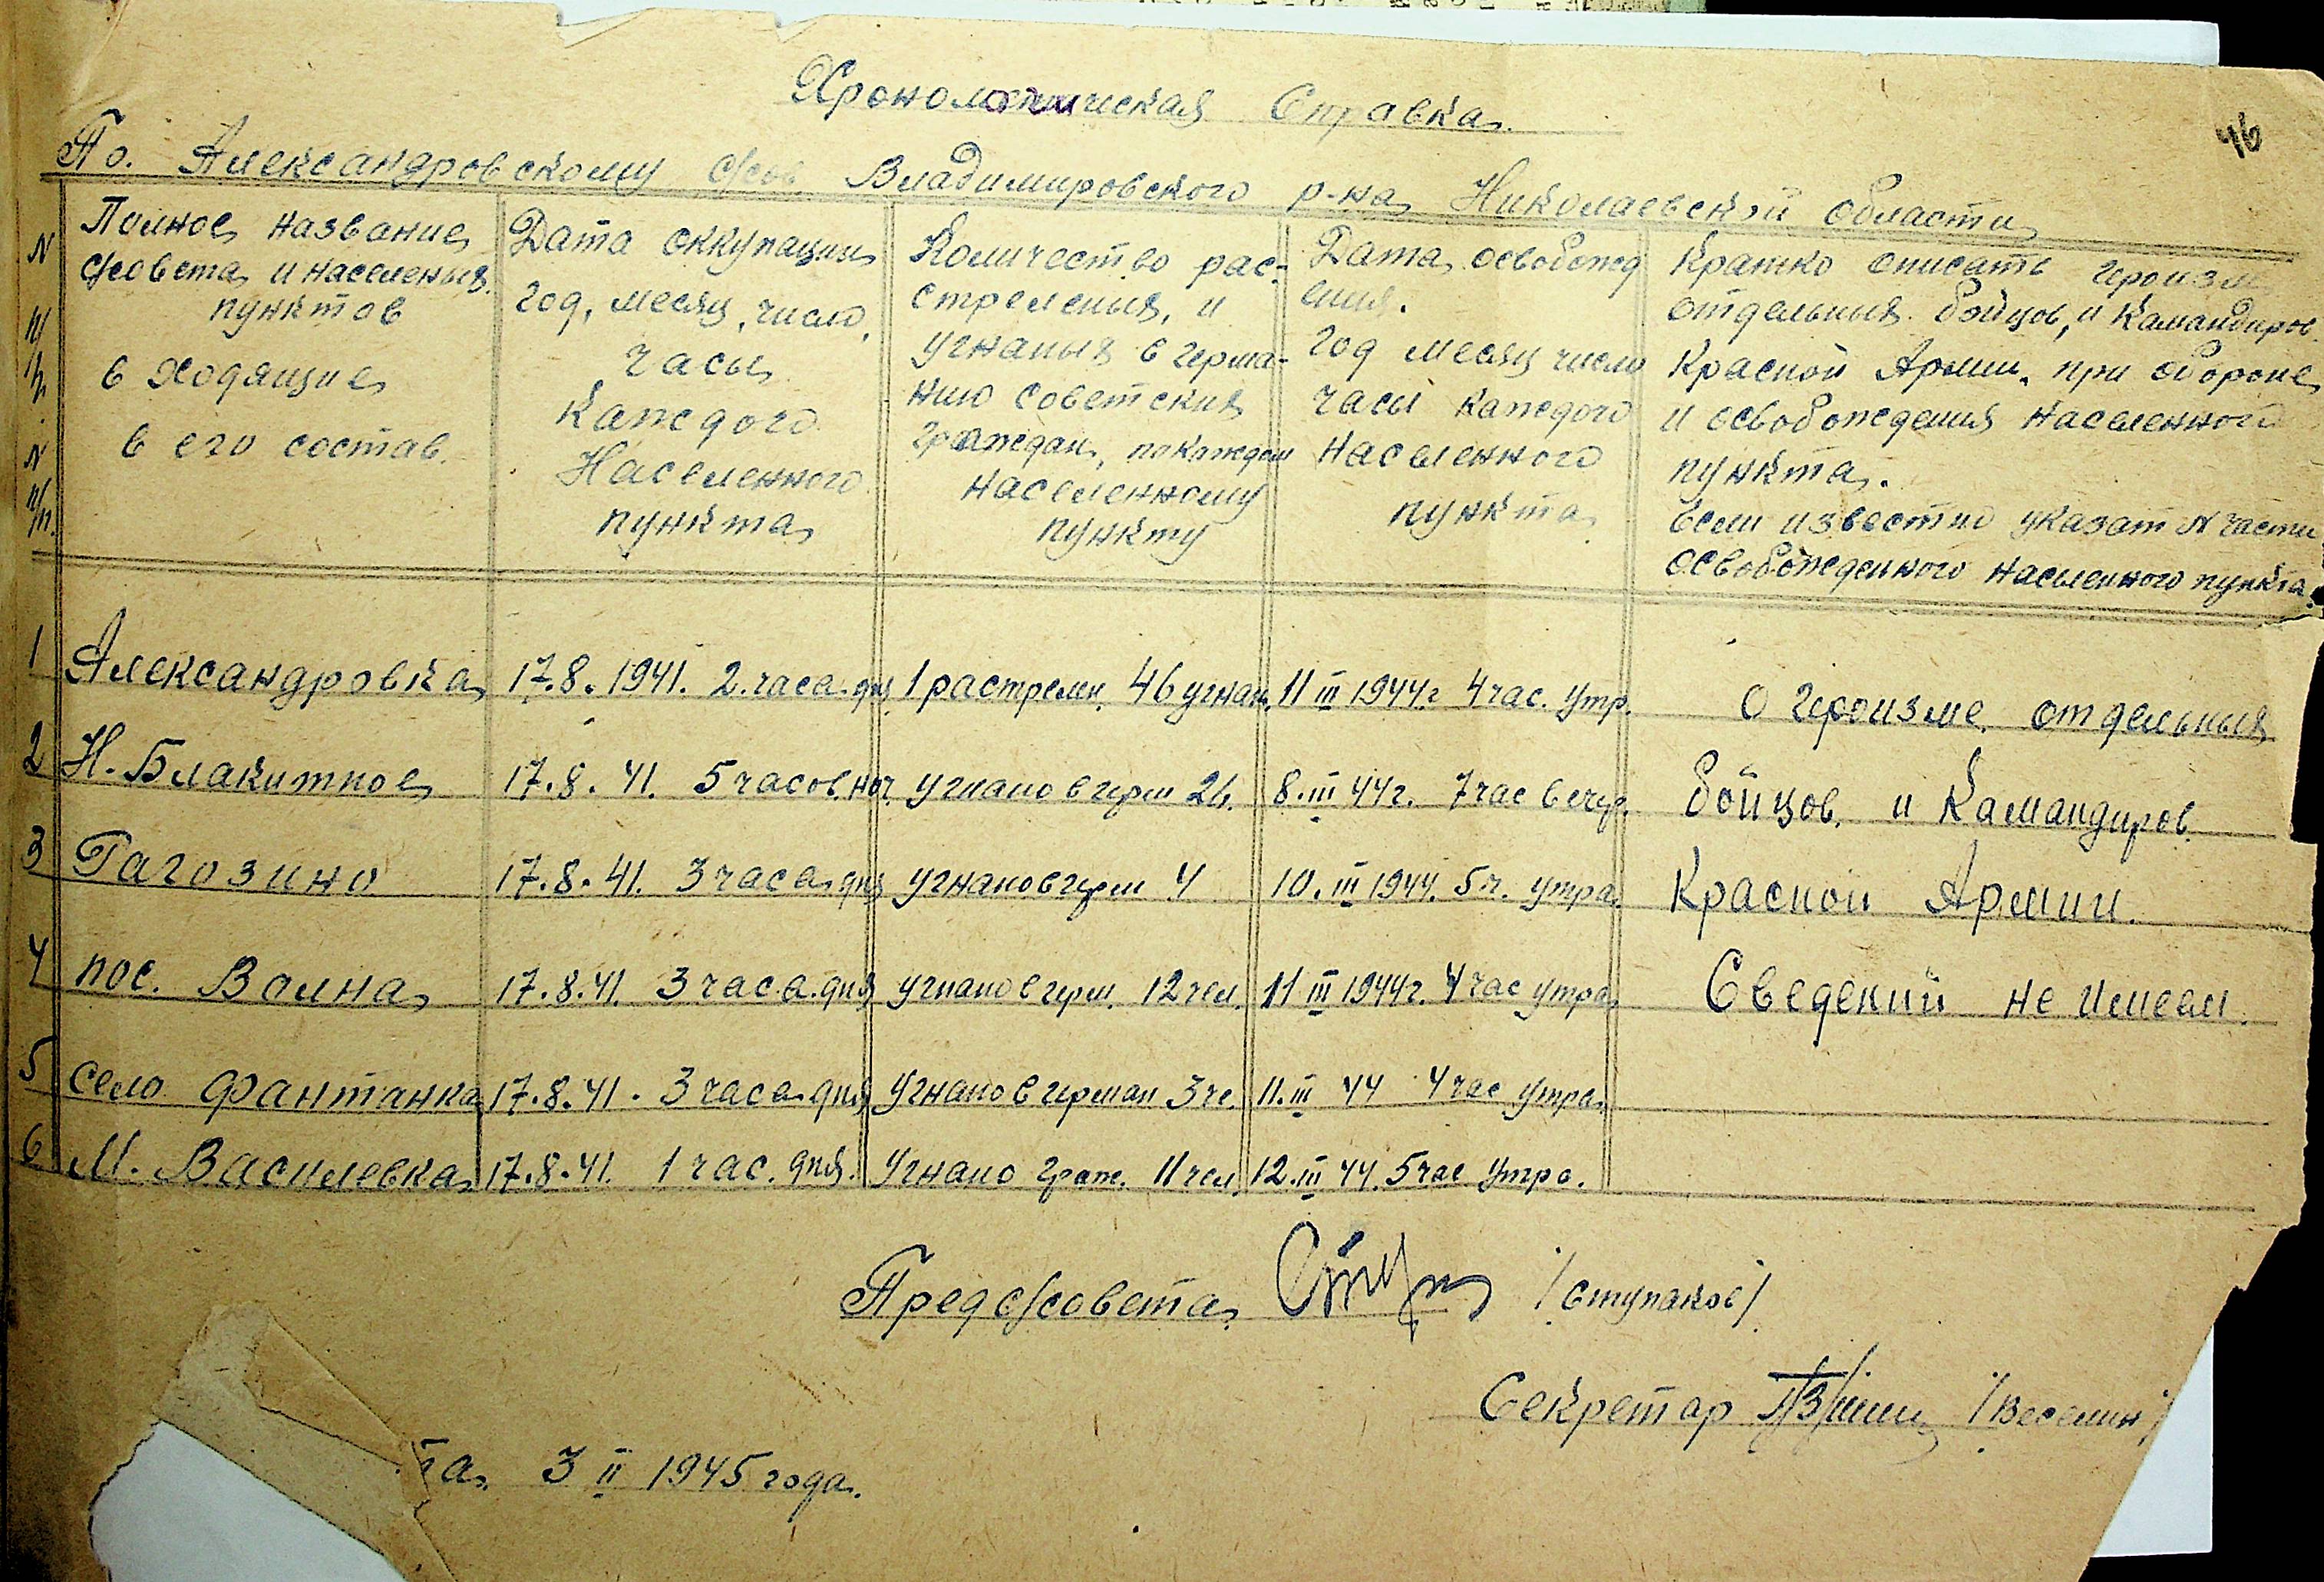 Хронологическая Справка.
46
По. Александровскому с/сов Владимировского р-на Николаевской области
N п/п. N п/п.
Полное название
с/совета и населеных
пунктов
в ходящие
в его состав.
Дата оккупации
год, месяц, число,
часы
Каждого
Населенного
пункта
Количество рас-
стреленых, и
угнаных в Герма-
нию советских
граждан, по каждом
населенному
пункту
Дата освобожд
ения.
Год месяц число
часы каждого
населенного
пункта
Кратко описать героизм
отдельных бойцов, и Камандиров
Красной Армии. при обороне
и освобождения населенного
пункта.
Если известно указат N части
освобожденного населенного пункта.
1 Александровка 17.8.1941. 2.часа.дня 1 растрелен. 46 угнан. 11 III 1944г 4 час. утр. О героизме отдельных
2 Н.Блакитное 17.8.41. 5 часов.ноч. угнано в герм 26. 8.III 44г. 7 час вечер. бойцов. и Камандиров.
3 Рагозино 17.8.41. 3 часа дня угнано в герм 4 10.III 1944. 5 ч. утра. Красной Армии.
4 пос. Волна 17.8.41. 3 часа.дня угнано в герм. 12 чел. 11 III 1944г. 4 час утра Сведений не имеем.
5 село фантанка 17.8.41. 3 часа дня угнано в герман 3 че. 11.III 44 4 час утра.
6 М. Василевка 17.8.41. 1 час. дня. Угнано граж. 11 чел. 12.III 44. 5 час утра.
Пред с/совета /Ступаков/
Секретар /Веселин/
та. 3 II 1945 года.